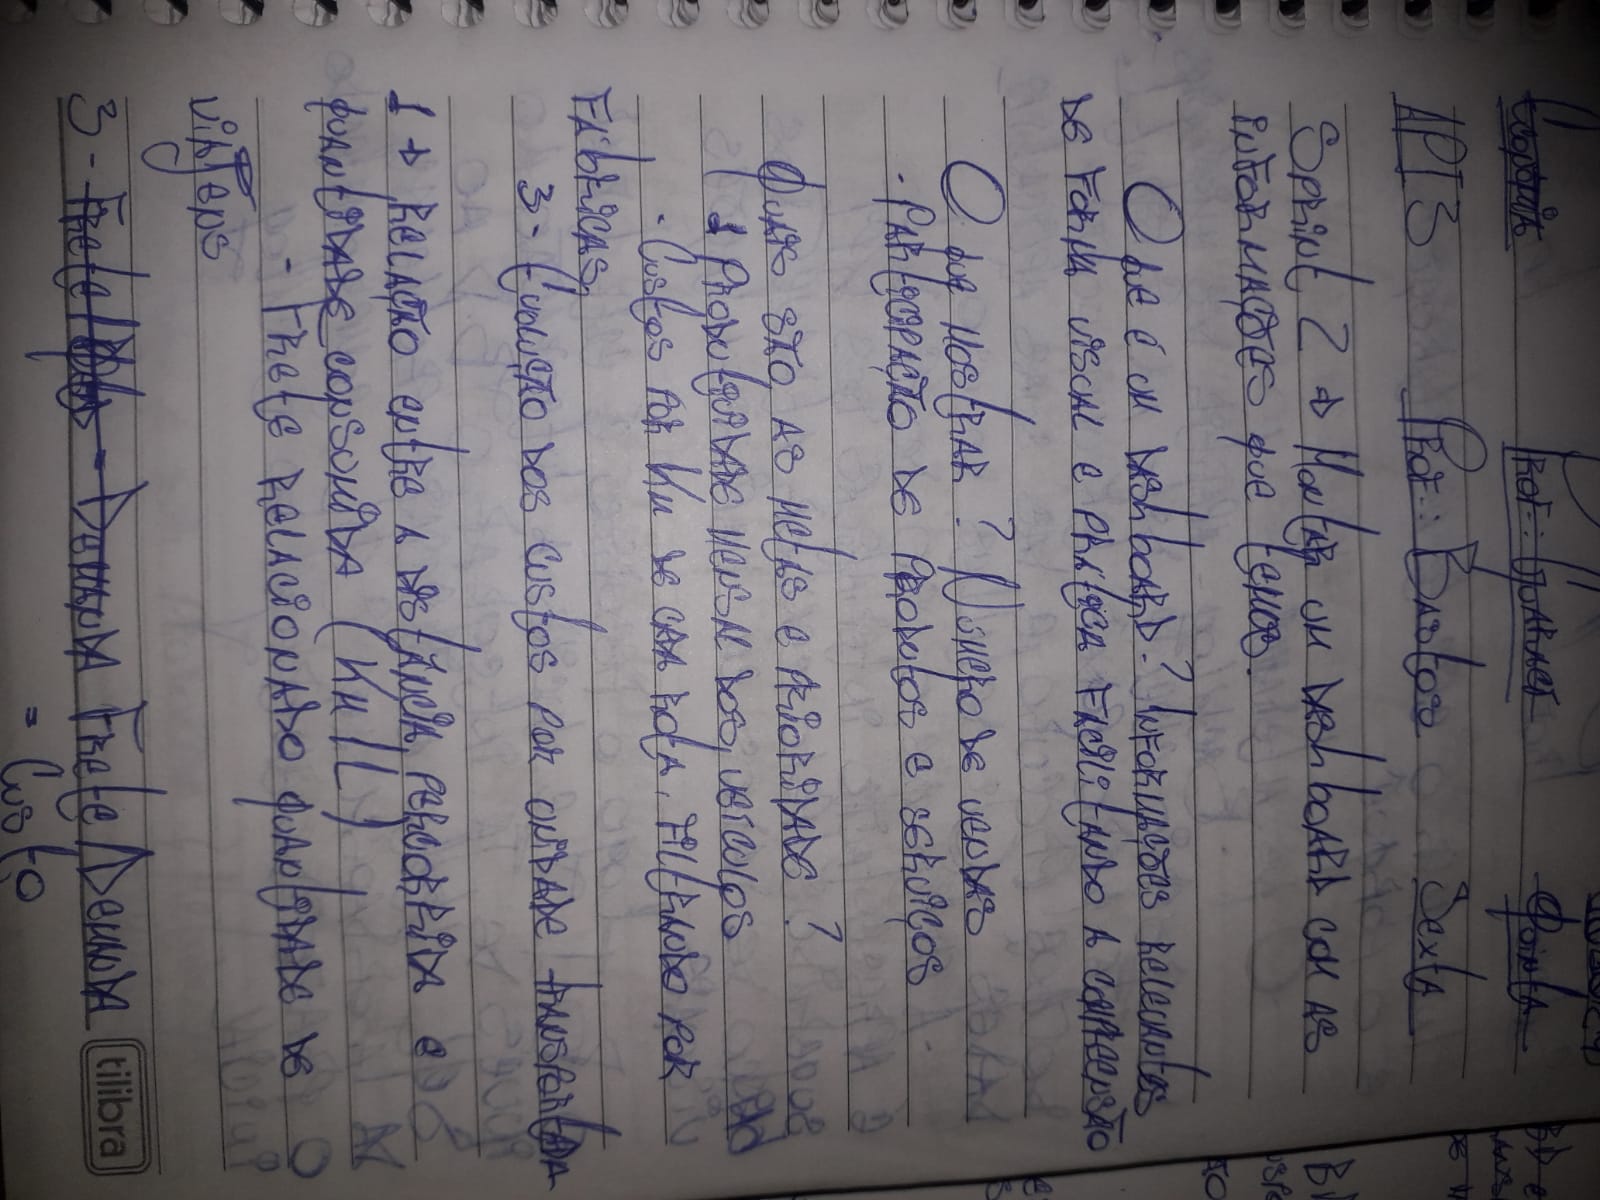 Economia Prof.: Guaraci Quinta
API 3 Prof.: Bastos Sexta
Sprint 2 → Montar um dashboard com as
informações que temos.
O que é um dashboard? Informações relevantes
de forma visual e prática facilitando a compreensão
O que mostrar? Número de vendas
- Participação de produtos e serviços
Quais são as metas e prioridade?
1 Produtividade mensal dos veículos
- Custos por Km de cada rota, filtrando por
fábricas,
3- Evolução dos custos por unidade transportada
1 → Relação entre a distância percorrida e
quantidade consumida (Km/L)
- Frete relacionado quantidade de
viagens
3 - Frete/ - Demanda Frete/Demanda
= Custo
tilibra